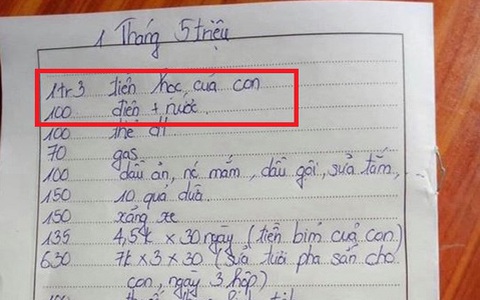 1 Tháng 5 triệu
1tr3 tiền học của con
100 điện + nước.
100 thẻ đt
70 gas
100 dầu ăn, nc mắm, dầu gội, sữa tắm, ...
150 10 quả dừa.
150 xăng xe
135 4,5k x 30 ngày (tiền bỉm của con)
630 7k x 3 x 30 (sữa tươi pha sẵn cho
con, ngày 3 hộp)